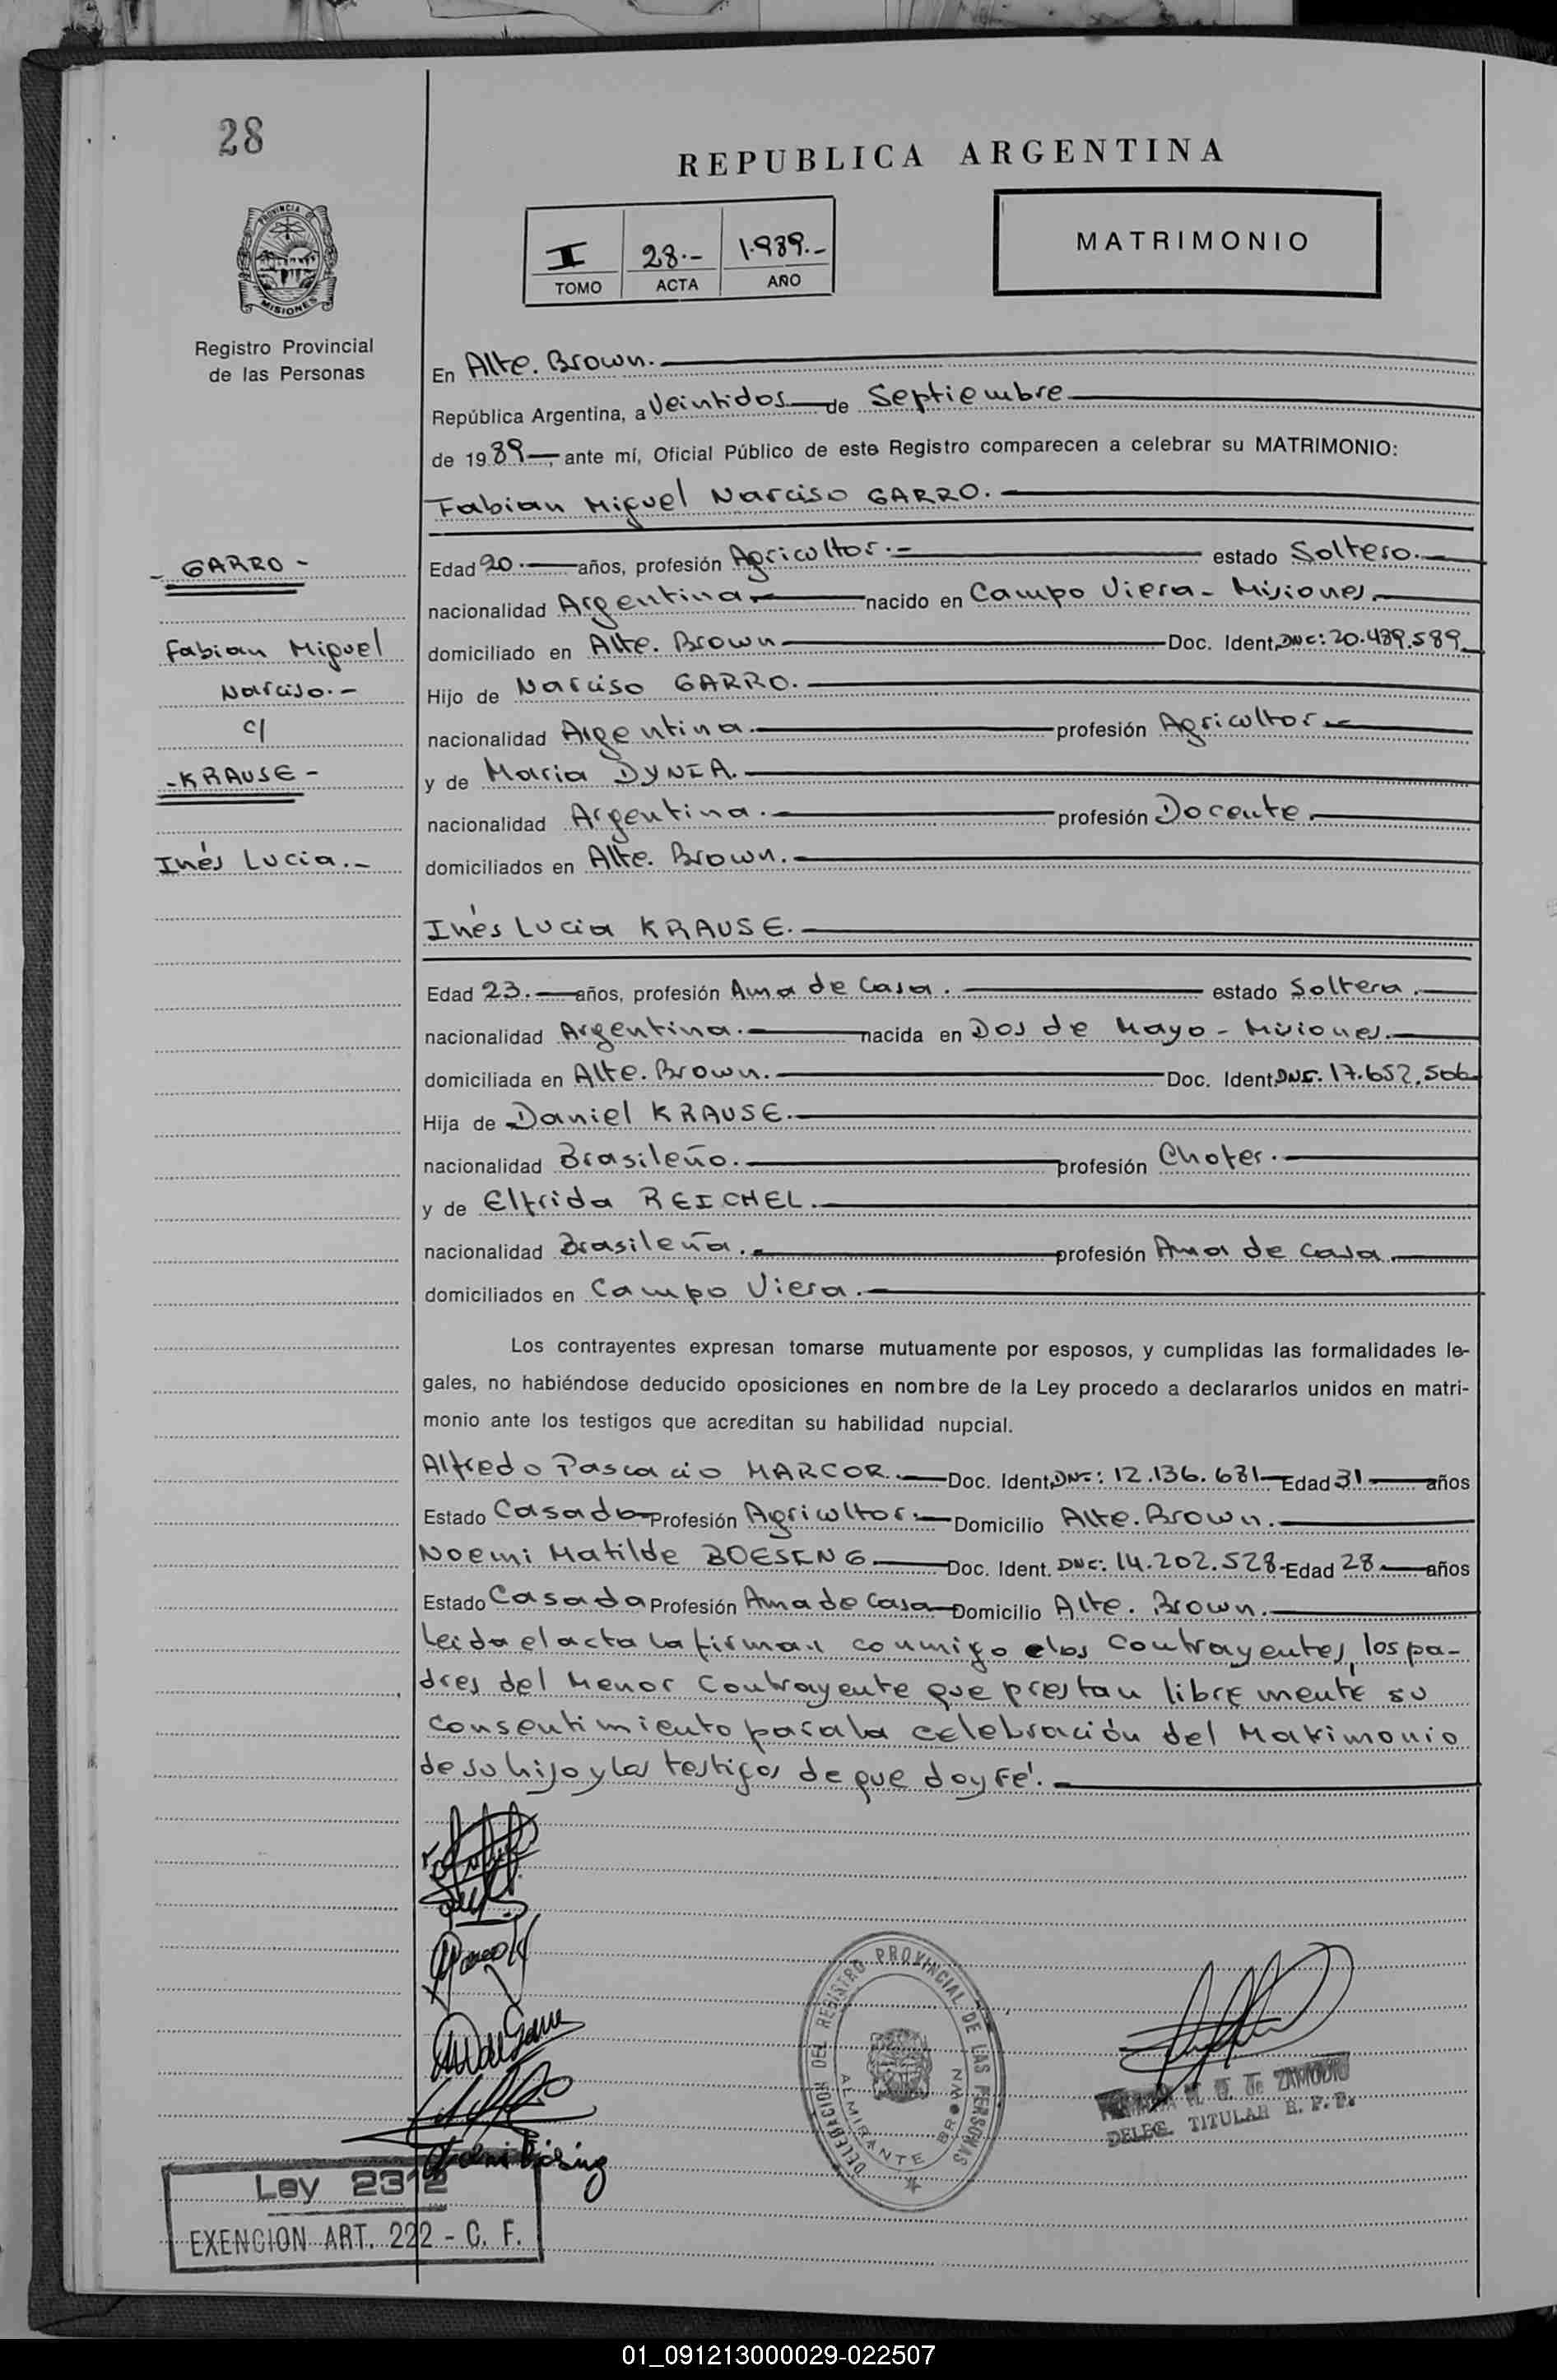 28
REPUBLICA ARGENTINA
PROVINCIA DE
MISIONES
I 28.- 1.989.-
TOMO ACTA AÑO
MATRIMONIO
Registro Provincial
de las Personas
En Alte. Brown.
República Argentina, a Veintidos de Septiembre
de 1989, ante mí, Oficial Público de este Registro comparecen a celebrar su MATRIMONIO:
Fabian Miguel Narciso GARRO.
- GARRO -
Fabian Miguel
Narciso.-
c/
- KRAUSE -
Inés Lucia.-
Edad 20. años, profesión Agricultor.- estado Soltero.
nacionalidad Argentina nacido en Campo Viera - Misiones.
domiciliado en Alte. Brown Doc. Ident. DNI: 20.489.589
Hijo de Narciso GARRO.
nacionalidad Argentina. profesión Agricultor
y de Maria DYNIA.
nacionalidad Argentina. profesión Docente.
domiciliados en Alte. Brown.
Inés Lucia KRAUSE.
Edad 23. años, profesión Ama de Casa. estado Soltera.
nacionalidad Argentina. nacida en Dos de Mayo - Misiones.
domiciliada en Alte. Brown. Doc. Ident. DNI. 17.652.506
Hija de Daniel KRAUSE.
nacionalidad Brasileño. profesión Chofer.
y de Elfrida REICHEL.
nacionalidad Brasileña. profesión Ama de Casa
domiciliados en Campo Viera.
Los contrayentes expresan tomarse mutuamente por esposos, y cumplidas las formalidades le-
gales, no habiéndose deducido oposiciones en nombre de la Ley procedo a declararlos unidos en matri-
monio ante los testigos que acreditan su habilidad nupcial.
Alfredo Pascacio MARCOR. Doc. Ident. DNI: 12.136.681 Edad 31 años
Estado Casado Profesión Agricultor. Domicilio Alte. Brown.
Noemi Matilde BOESING Doc. Ident. DNI: 14.202.528 Edad 28 años
Estado Casada Profesión Ama de Casa Domicilio Alte. Brown.
Leida el acta la firman conmigo los Contrayentes, los pa-
dres del Menor Contrayente que prestan libremente su
Consentimiento para la celebración del Matrimonio
de su hijo y los testigos de que doy Fé.
DELEGACION DEL REGISTRO PROVINCIAL DE LAS PERSONAS
ALMIRANTE BROWN
ZAMUDIO
DELEG. TITULAR R. P. P.
Ley 2312
EXENCION ART. 222 - C. F.
01_091213000029-022507